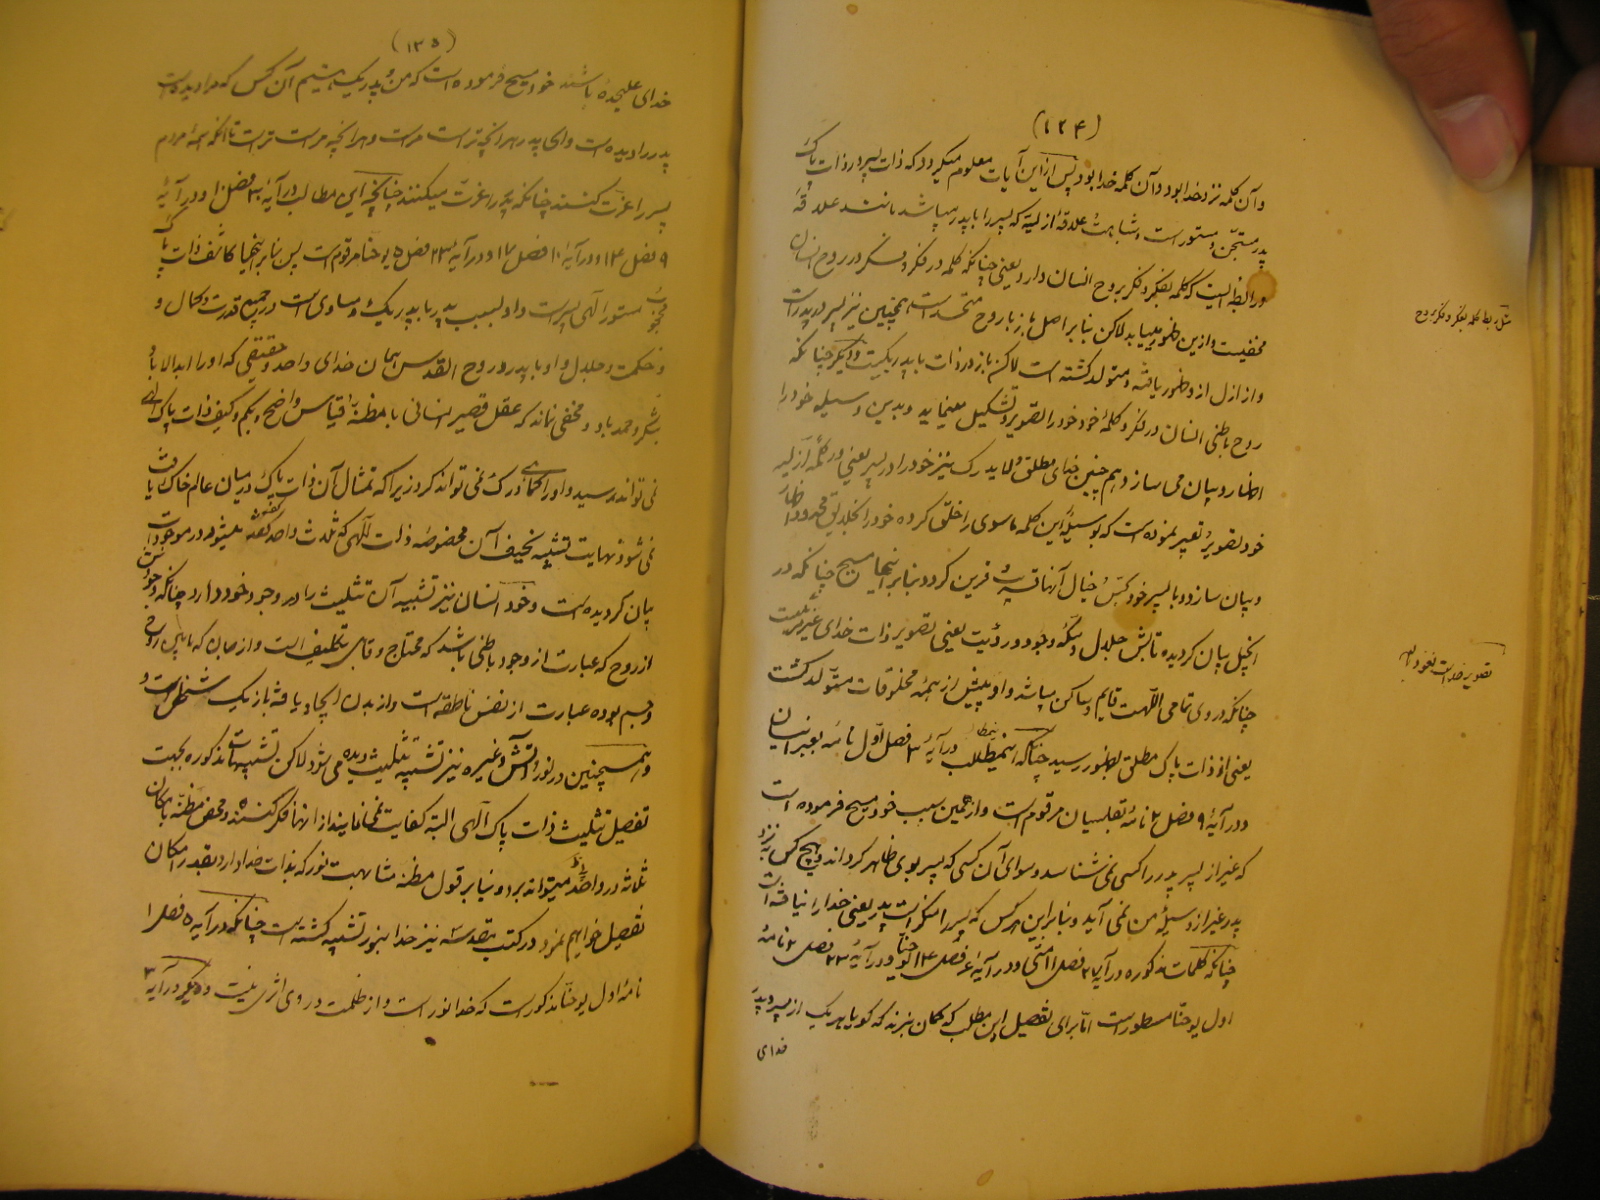 (۱۲۴)
و آن کلمه نزد خدا بود و آن کلمه خدا بود پس از این آیات معلوم میگردد که ذات پسر در ذات پاک
پدر مستجن و مستور است و مشابهت علاقهٔ ازلیهٔ که پسر را با پدر میباشد مانند علاقهٔ
و رابطه ایست که کلمه بفکر و فکر بروح انسان دارد یعنی چنانکه کلمه در فکر و فکر در روح انسان
مخفیست و ازین ظهور مییابد لاکن بنا بر اصل باز با روح متحد است همچنین نیز پسر در پدر است
و از ازل از او ظهور یافته و متولد گشته است لاکن باز در ذات با پدر یکیست و دیگر چنانکه
روح باطنی انسان در فکر و کلمهٔ خود خود را تصویر و تشکیل مینماید و بدین وسیله خود را
اظهار و بیان می سازد هم چنین خدای مطلق و لا یدرک نیز خود را در پسر یعنی در کلمهٔ ازلیه
خود تصویر و تعبیر نموده است که بوسیلهٔ این کلمه ماسوی را خلق کرده خود را بخلایق محدود اظهار
و بیان سازد و با پسر خود بحس و خیال آنها قریب و قرین گردد بنابر این مسیح چنانکه در
انجیل بیان گردیده تابش جلال و سکهٔ وجود و رؤیت یعنی تصویر ذات خدای غیر مرئیست
چنانکه در وی تمامی اللهیت قایم و ساکن میباشد و او پیش از همهٔ مخلوقات متولد گشت
یعنی از ذات پاک مطلق بظهور رسید چنانکه اینمطلب در آیهٔ ۳ فصل اوّل نامهٔ بعبرانیان
و در آیهٔ ۹ فصل ۲ نامهٔ بقلسیان مرقوم است و از همین سبب خود مسیح فرموده است
که غیر از پسر پدر را کسی نمی شناسد و سوای آن کسی که پسر بوی ظاهر کرداند و هیچ کس به نزد
پدر غیر از وسیلهٔ من نمی آید و بنابر این هر کس که پسر را منکر است پدر یعنی خدا را نیافته است
چنانکه کلمات مذکوره در آیهٔ ۲۷ فصل ۱۱ متّی و در آیهٔ ۶ فصل ۱۴ یوحنّا و در آیهٔ ۲۳ فصل ۲ نامهٔ
اول یوحنّا مسطور است امّا برای تفصیل این مطلب که گمان نبرند که گویا هر یک از پسر و پدر
خدای
مثل ربط کلمه بفکر و فکر بروح
تصویر خدا است نعوذ بالله
(۱۲۵)
خدای علیحده باشند خود مسیح فرموده است که من و پدر یک هستیم آن کس که مرا دیده است
پدر را دیده است و ای پدر هر آنچه تراست مراست و هر آنچه مراست تراست تا آنکه همهٔ مردم
پسر را عزّت کنند چنانکه پدر را عزّت میکنند چنانچه این مطالب در آیهٔ ۳۰ فصل ۱۰ و در آیهٔ
۹ فصل ۱۴ و در آیهٔ ۱۰ فصل ۱۷ و در آیهٔ ۲۳ فصل ۵ یوحنّا مرقوم است پس بنابر اینها کاشف ذات پاک
محجوب مستور الهی پسر است و او بسبب پدر با پدر یک و مساوی است در جمیع قدرت و کمال و
و حکمت و جلال و او با پدر و روح القدس همان خدای واحد و حقیقی که او را ابد الاباد
شکر و حمد باد و مخفی نماند که عقل قصیر انسانی با مظنه و قیاس واضح و بکم و کیف ذات پاک الهی
نمی تواند رسید و او را کماهی درک نمی تواند کرد زیرا که تمثال آن ذات پاک در میان عالم خاک یافت
نمی شود نهایت تشبیه نحیف آن مخصوصه ذات الهی که ثلاث واحد گفته میشود در موجودات
بیان گردیده است و خود انسان نیز تشبیه آن تثلیث را در وجود خود دارد چنانکه وجودش
از روح که عبارت از وجود باطنی باشد که محتاج و قابل تکلیف است و از جان که ما بین روح
و جسم بوده عبارت از نفس ناطقه است و از بدن ایجاد یافته باز یک شخص است و
و همچنین در نور و آتش و غیره نیز تشبیه تثلیث دیده می شود لاکن تشبیهات مذکوره بجهت
تفصیل تثلیث ذات پاک الهی البته کفایت نمی نمایند از انها فکر کننده و محض مظنه بامکان
ثلاثه در واحد میتواند برد و بنابر قول مظنه مشابهت نور که بذات خدا دارد بقدر امکان
تفصیل خواهیم نمود در کتب مقدسه نیز خدا بنور تشبیه گشته است چنانکه در آیهٔ ۵ فصل ۱
نامهٔ اول یوحنّا مذکور است که خدا نور است و از ظلمت در وی اثری نیست و دیگر در آیهٔ ۳